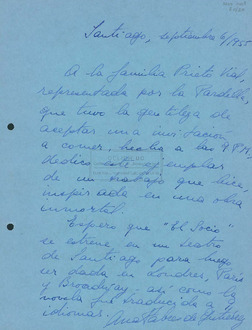 Santiago, septiembre 6/1955
A la familia Prieto Vial
representada por la Pardilla
que tuvo la gentileza de
aceptar una invitación
a comer, hecha a las 9 P.M.
dedico este ejemplar
de un trabajo que hice
inspirado en una obra
inmortal.
Espero que "El Socio"
se estrene en un teatro
de Santiago para luego
ser dada en Londres, París
y Broadway, así como la
novela fué traducida a
idiomas.